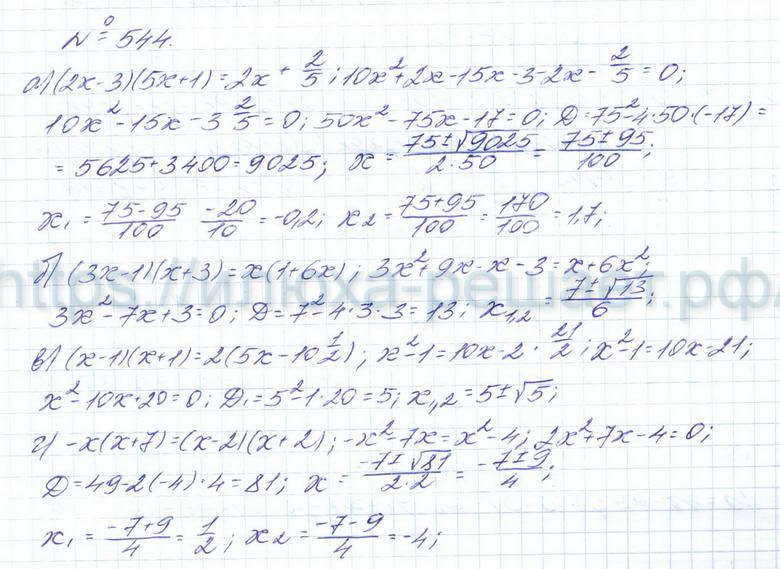 № 544.
а) (2x-3)(5x+1)=2x+2/5; 10x²+2x-15x-3-2x-2/5=0;
10x²-15x-3 2/5=0; 50x²-75x-17=0; D=75²-4·50·(-17)=
=5625+3400=9025; x=(75±√9025)/(2·50)=(75±95)/100;
x₁=(75-95)/100 -20/10=-0,2; x₂=(75+95)/100=170/100=1,7;
б) (3x-1)(x+3)=x(1+6x); 3x²+9x-x-3=x+6x²;
https://илюха-решает.рф/
3x²-7x+3=0; D=7²-4·3·3=13; x₁,₂=(7±√13)/6;
в) (x-1)(x+1)=2(5x-10 1/2); x²-1=10x-2·21/2; x²-1=10x-21;
x²-10x+20=0; D₁=5²-1·20=5; x₁,₂=5±√5;
г) -x(x+7)=(x-2)(x+2); -x²-7x=x²-4; 2x²+7x-4=0;
D=49-2(-4)·4=81; x=(-7±√81)/(2·2)=(-7±9)/4;
x₁=(-7+9)/4=1/2; x₂=(-7-9)/4=-4;